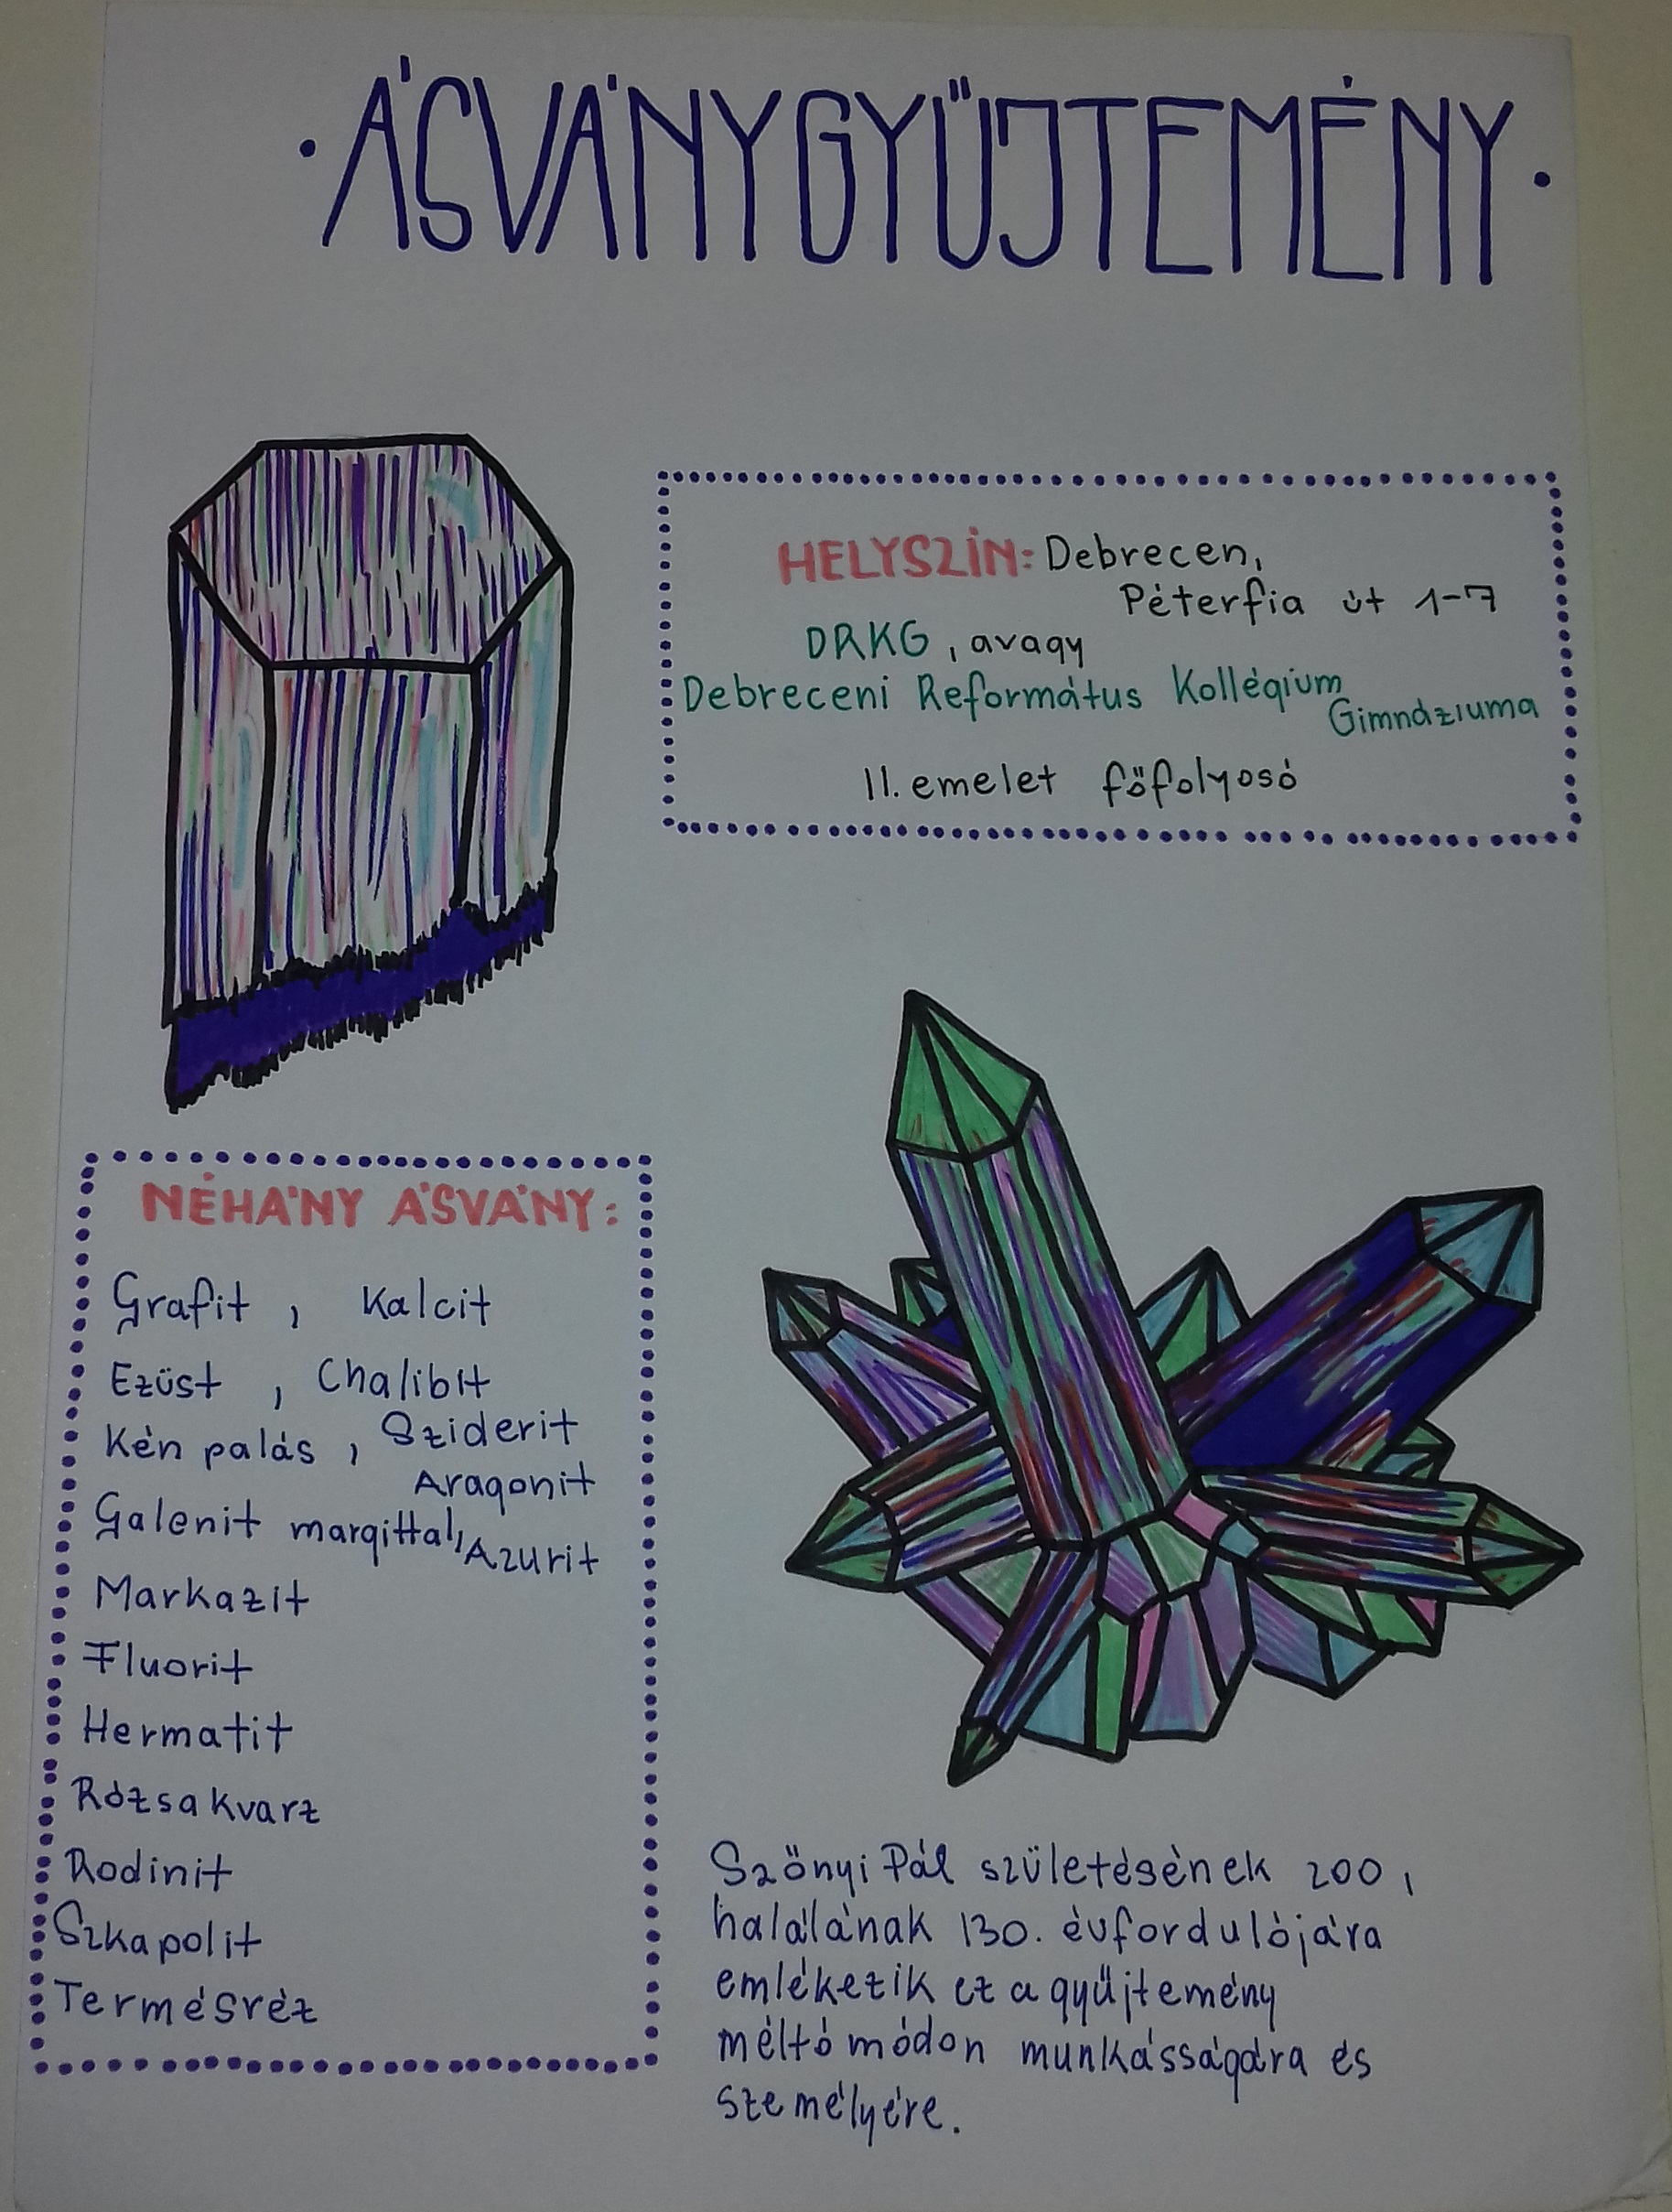 · ÁSVÁNYGYŰJTEMÉNY ·
HELYSZÍN: Debrecen,
Péterfia út 1-7
DRKG, avagy
Debreceni Református Kollégium
Gimnáziuma
II. emelet főfolyosó
NÉHÁNY ÁSVÁNY:
Grafit, Kalcit
Ezüst, Chalibit
Kén palás, Sziderit
Aragonit
Galenit margittal, Azurit
Markazit
Fluorit
Hermatit
Rózsakvarz
Rodinit
Szkapolit
Termésréz
Szőnyi Pál születésének 200,
halálának 130. évfordulójára
emlékezik ez a gyűjtemény
méltó módon munkásságára és
személyére.